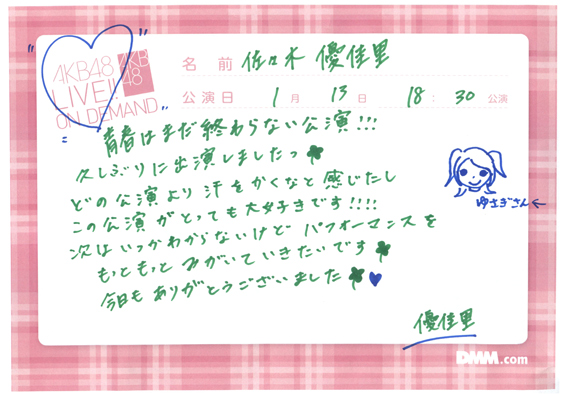 AKB48
LIVE!!
ON DEMAND
AKB
48
名前 佐々木 優佳里
公演日 1月 13日 18:30 公演
青春はまだ終わらない公演!!!
久しぶりに出演しましたっ
どの公演より汗をかくなと感じたし
この公演がとっても大好きです!!!!
次はいつかわからないけど パフォーマンスを
もっともっと みがいていきたいです
今日も ありがとうございました
ゆうぎさん←
優佳里
DMM.com